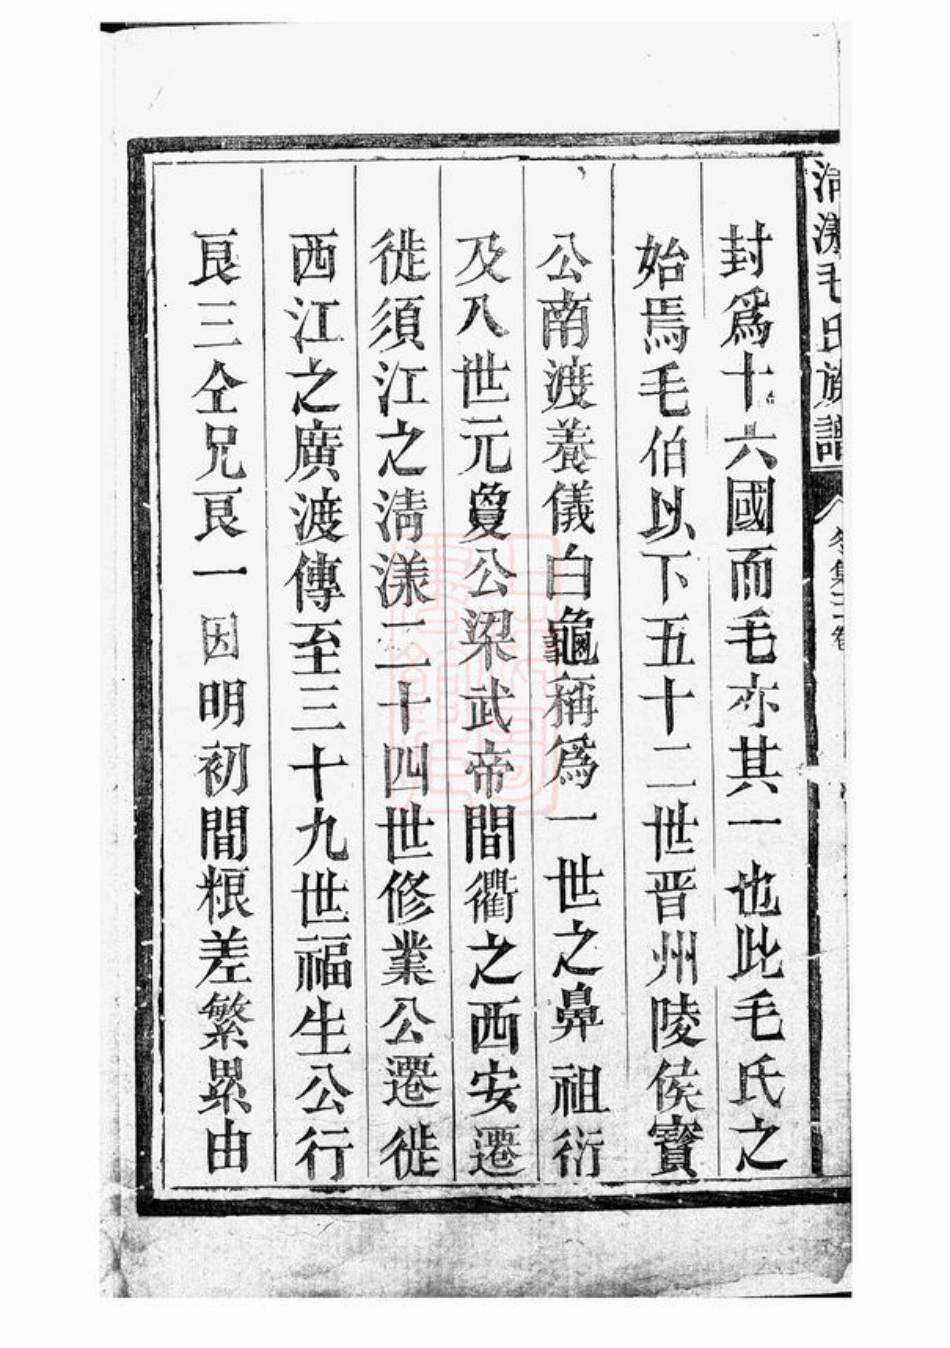 清漾毛氏族譜
冬集二卷
封爲十六國而毛亦其一也此毛氏之
始焉毛伯以下五十二世晋州陵侯寳
公南渡養儀白龜稱爲一世之鼻祖衍
及八世元敻公梁武帝間衢之西安遷
徙須江之淸漾二十四世修業公遷徙
西江之廣渡傳至三十九世福生公行
良三仝兄良一因明初間粮差繁累由